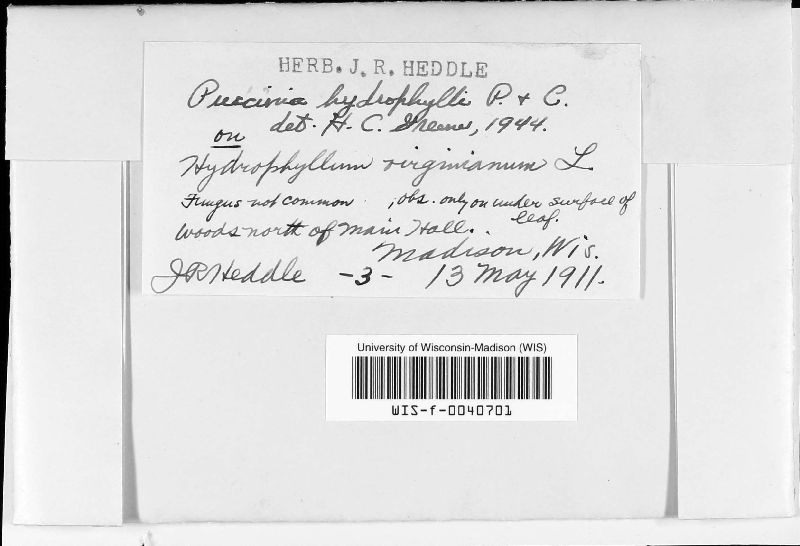 HERB. J. R. HEDDLE
Puccinia hydrophylli P. & C.
det. H. C. Greene, 1944.
on
Hydrophyllum virginianum L
Fungus not common ; obs. only on under surface of
leaf.
Woods north of Main Hall.
Madison, Wis.
JR Heddle -3- 13 May 1911.
University of Wisconsin-Madison (WIS)
WIS-f-0040701